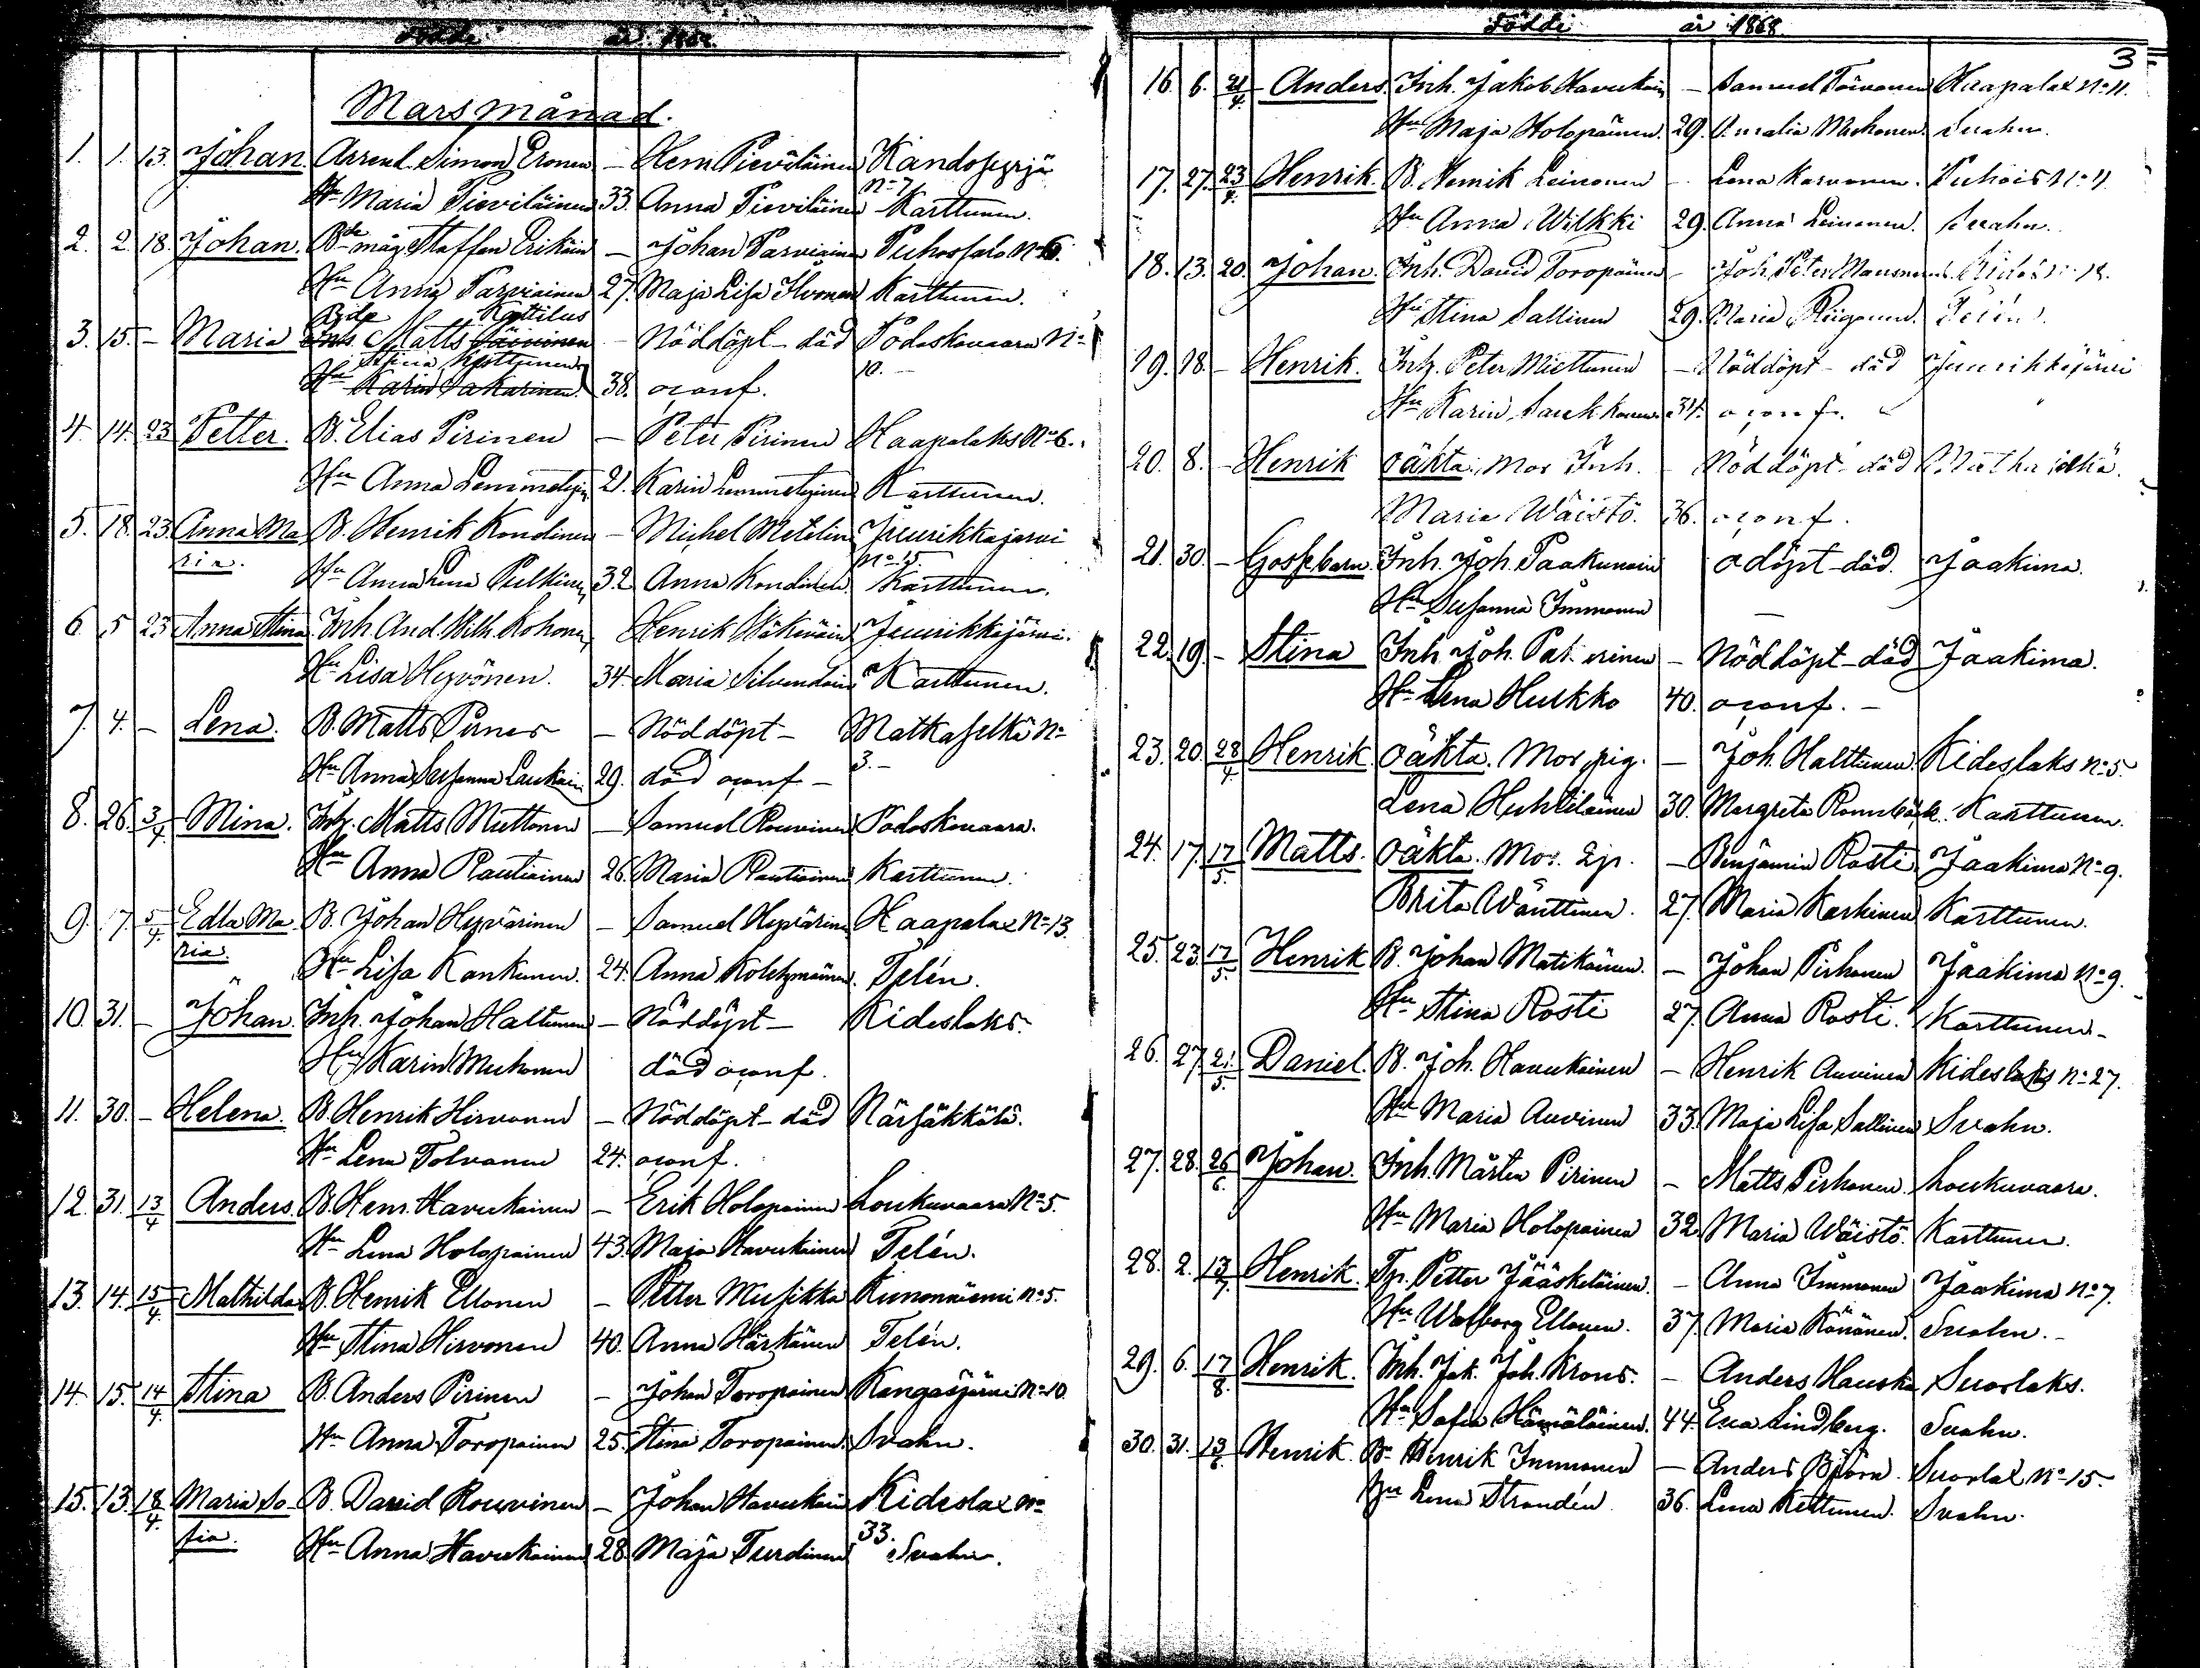 Födde år 1868.
Marsmånad.
1. 1. 13. Johan Arrend. Simon Eronen – Henr. Pieviläinen Kandosyrjä
Hu Maria Pieviläinen 33. Anna Pieviläinen No 7 Karttunen.
2. 2. 18. Johan. Bde måg Staffan Erikäin – Johan Parviainen Puhossalo No 6.
Hu Anna Parviainen 27. Maja Lisa Ikonen Karttunen.
Bde Rottilus
3. 15. – Maria Inh. Matts – Nöddöpt – död Podoskavaara No
Stina Kettunen 10. –
Hu Karin Pakarinen 38. oconf.
4. 14. 23 Petter. B. Elias Pirinen – Peter Pirinen Haapalaks No 6.
Hu Anna Lemmetyin 21. Karin Lemmetyinen Karttunen.
5. 18. 23. Anna Ma B. Henrik Kondinen – Michel Metelin Juurikkajärvi
ria. Hu Anna Lena Pulkinen 32 Anna Kondinen No 15 Karttunen.
6. 5 23 Anna Stina Inh. And. Wilh. Kohonen Henrik Wäkeväin Juurikkajärvi.
Hu Lisa Hyvönen. 34. Maria Silvendoin Karttunen.
7. 4. – Lena. B. Matts Pirnes – Nöddöpt – Matkaselkä No
Hu Anna Susanna Laukain 29. död oconf – 3. –
8. 26. 3/4 Mina. Inh. Matts Muttonen – Samuel Rouvinen Podoskavaara.
Hu Anna Rautiainen 26. Maria Rautiainen Karttunen.
9. 7. 5/4 Edla Ma B. Johan Hyvärinen – Samuel Hyvärinen Haapalax No 13.
ria. Hu Lisa Kankunen. 24. Anna Kolehmainen. Telén.
10. 31. – Johan. Inh. Johan Haltunen – Nöddöpt – Kideslaks.
Hu Karin Mukonen död oconf.
11. 30. – Helena. B. Henrik Hirvonen – Nöddöpt – död Närsäkkälä.
Hu Lena Tolvanen 24. oconf.
12. 31. 13/4 Anders. B. Henr. Havukainen – Erik Holopainen Loukuvaara No 5.
Hu Lena Holopainen 43. Maja Havukainen Telén.
13. 14. 15/4 Mathilda B. Henrik Ellonen – Petter Musikka Kumonniemi No 5.
Hu Stina Hirvonen 40. Anna Härkänen Telén.
14. 15. 14/4 Stina B. Anders Pirinen – Johan Toropainen Kangasjärvi No 10
Hu Anna Toropainen 25. Stina Toropainen. Svahn.
15. 13. 18/4. Maria So B. David Rouvinen – Johan Havukain Kideslax No
fia. Hu Anna Havukainen 28. Maja Turdinen 33. Svahn.
Födde år 1868.
3
16. 6. 21/4. Anders. Inh. Jakob Havukain – Samuel Toivanen Haapalax No 11.
Hu Maja Holopainen. 29. Amalia Mushonen. Svahn.
17. 27. 23/4 Henrik. B. Henrik Leinonen – Lena Karvonen. Puhois No 11
Hu Anna Wilkki 29. Anna Leinonen. Svahn.
18. 13. 20. Johan. Inh. David Toropainen – Joh. Peter Kides No
Hu Stina Sallinen 29. Maria Telén.
19. 18. – Henrik. Inh. Peter Miettunen – Nöddöpt – död Juurikkajärvi
Hu Karin Saukkonen 34. oconf.
20. 8. – Henrik oäkta. Mor Inh. – Nöddöpt – död
Maria Wäistö. 36. oconf.
21. 30. – Gossebarn Inh. Joh. Paakunain odöpt – död. Jaakima.
Hu Susanna Immonen –
22. 19. – Stina Inh. Joh. Pakarinen – Nöddöpt – död Jaakima.
Hu Lena Hulkko 40. oconf. –
23. 20. 28/4 Henrik oäkta. Mor pig. – Joh. Halttunen. Kideslaks No 5.
Lena Huhtilainen 30. Margreta Rönnbäck. Karttunen.
24. 17. 17/5. Matts. oäkta. Mor. Ljr. – Benjamin Rosti Jaakima No 9.
Brita Wänttinen. 27. Maria Karhinen Karttunen.
25. 23. 17/5. Henrik B. Johan Matikainen. – Johan Pirhonen Jaakima No 9.
Hu Stina Rosti 27. Anna Rosti. Karttunen –
26. 27. 21/5. Daniel. B. Joh. Havukainen – Henrik Auvinen Kideslaks No 27.
Hu Maria Auvinen 33. Maja Lisa Sallinen Svahn.
27. 28. 26/6. Johan. Inh. Mårten Pirinen – Matts Pirhonen. Loukuvaara.
Hu Maria Holopainen 32. Maria Wäistö. Karttunen.
28. 2. 13/7. Henrik. Tp. Petter Jääskeläinen. – Anna Immonen Jaakima No 7.
Hu Walborg Ellonen. 37. Maria Könönen. Svahn. –
29. 6. 17/8. Henrik. Inh. Jak. Joh. Krons. – Anders Hauska Suorlaks.
Hu Sofia Hämäläinen. 44. Eva Lindberg. Svahn.
30. 31. 13/6. Henrik. B. Henrik Immonen – Anders Björn. Suorlax No 15.
Hu Lena Strandén. 36. Lena Kettunen. Svahn.